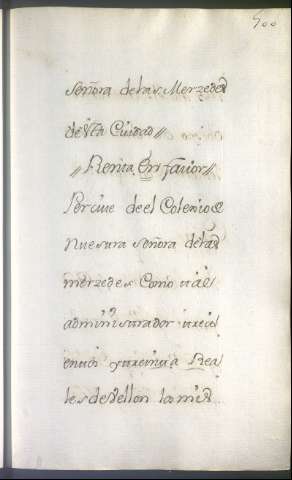 500
Señora de las Merzedes
de Vtta Ciudad //
// Renta, En favor //
Perciue de el Colexio de
Nuestra Señora de las
merzedes Como ttal
administtrador ttrecie
enttos y ttreintta Rea
les de Vellon la mitd